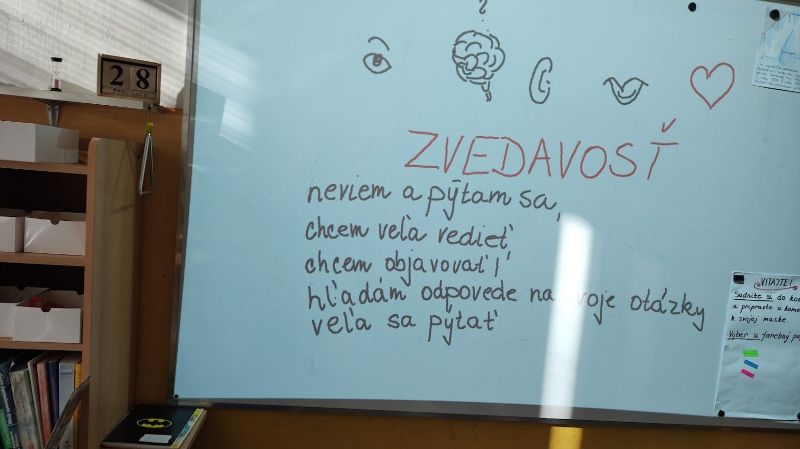 ?
28
ZVEDAVOSŤ
neviem a pýtam sa,
chcem veľa vedieť
chcem objavovať
hľadám odpovede na svoje otázky
veľa sa pýtať
VITAJTE!
Sadnite si do
a pripravte
k svojej maske.
Vyber si farebný